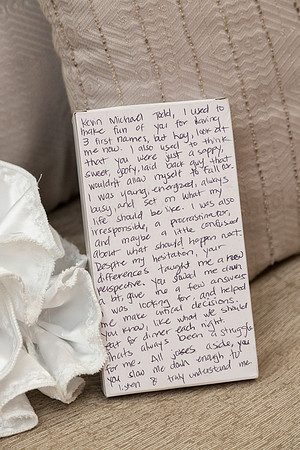 Kevin Michael Todd, I used to
make fun of you for having
3 first names, but hey, look at
me now. I also used to think
that you were just a sappy,
sweet, goofy, laid back guy that
wouldn't allow myself to fall for.
I was young, energized, always
busy, and set on what my
life should be like. I was also
irresponsible, a procrastinator,
and maybe a little confused
about what should happen next.
Despite my hesitation, your
differences taught me a new
perspective. You guided me down
a bit, give me a few answers
I was looking for, and helped
me make critical decisions.
You know, like what we should
eat for dinner each night.
Thats always been a struggle
for me. All jokes aside, you
you slow me down enough to
listen & truly understand me